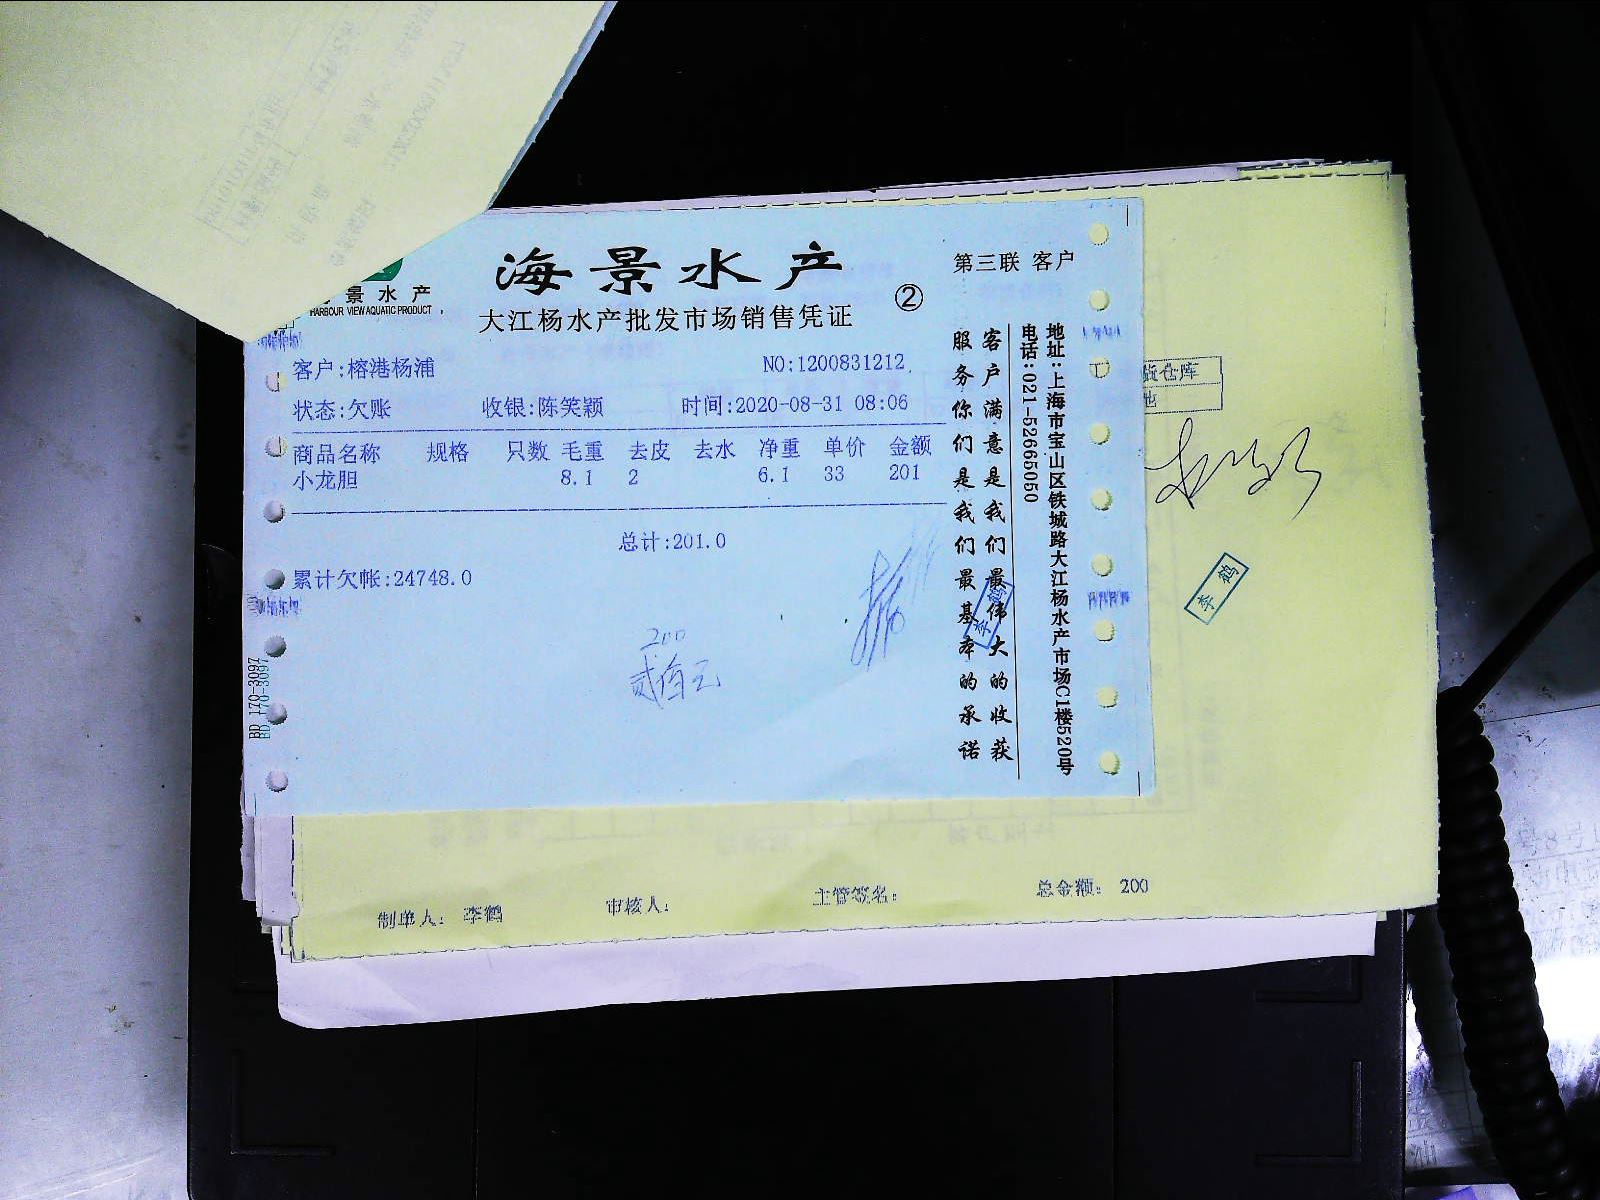 海景水产
景水产
HARBOUR VIEW AQUATIC PRODUCT
大江杨水产批发市场销售凭证
②
第三联 客户
客户:榕港杨浦
NO:1200831212
状态:欠账 收银:陈笑颖 时间:2020-08-31 08:06
商品名称 规格 只数 毛重 去皮 去水 净重 单价 金额
小龙胆 8.1 2 6.1 33 201
总计:201.0
累计欠帐:24748.0
200
贰佰元
客户满意是我们最伟大的收获
服务你们是我们最基本的承诺
地址:上海市宝山区铁城路大江杨水产市场C1楼520号
电话:021-52665050
BD 170-3097
李鹤
仓库
李鹤
制单人: 李鹤 审核人: 主管签名: 总金额: 200